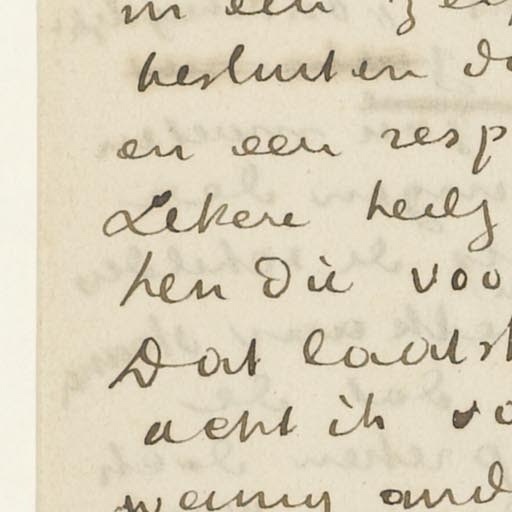 in een ze
besluiten d
en een resp
Zekere heilg
hen die voo
Dat laatst
acht ik vo
weinig and